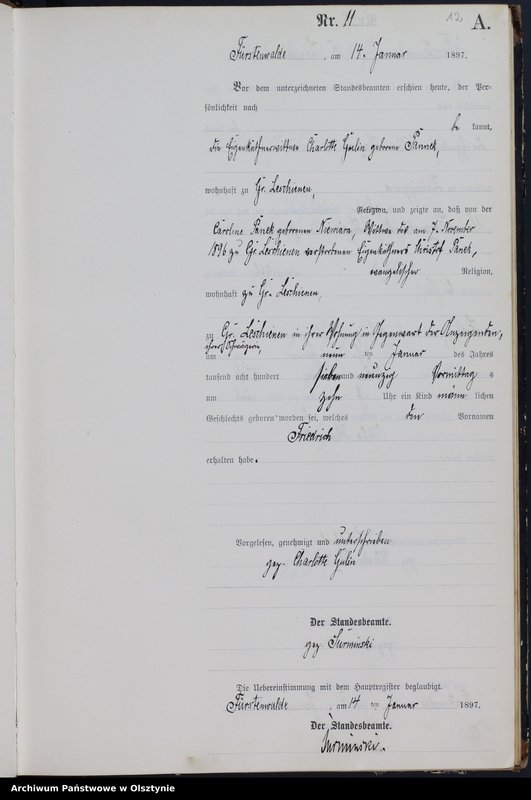 Nr. 11
12
A.
Fürstenwalde, am 14. Januar 1897.
Vor dem unterzeichneten Standesbeamten erschien heute, der Per-
sönlichkeit nach
be kannt,
die Eigenkäthnerwittwe Charlotte Gulin geborene Panneck,
wohnhaft zu Gr. Leschienen,
Religion, und zeigte an, daß von der
Caroline Panek geborenen Niemara, Wittwe des am 7. November
1896 zu Gr. Leschienen verstorbenen Eigenkäthners Christof Panek,
evangelischer Religion,
wohnhaft zu Gr. Leschienen,
zu Gr. Leschienen in ihrer Wohnung in Gegenwart der Anzeigenden,
ihrer Schwägerin,
am neun ten Januar des Jahres
tausend acht hundert sieben und neunzig Vormittag s
um zehn Uhr ein Kind männ lichen
Geschlechts geboren worden sei, welches den Vornamen
Friedrich
erhalten habe.
Vorgelesen, genehmigt und unterschrieben
gez. Charlotte Gulin
Der Standesbeamte.
gez. Surminski
Die Uebereinstimmung mit dem Hauptregister beglaubigt.
Fürstenwalde, am 14 ten Januar 1897.
Der Standesbeamte.
Surminski.
Archiwum Państwowe w Olsztynie